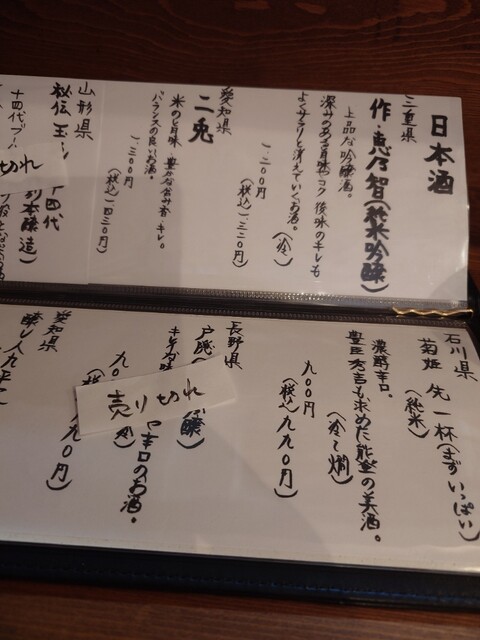 日本酒
三重県
作・恵乃智(純米吟醸)
上品な吟醸酒。
深みのある旨味とコク 後味のキレも
よくサラリと消えていくお酒。
(冷)
一、二〇〇円
(税込)一、三二〇円)
愛知県
二兎
米のと旨味 豊かな含み香・キレ。
バランスの良いお酒。
一、三〇〇円
(税込)一、四三〇円)
山形県
秘伝玉
十四代
切れ
石川県
菊姫 先一杯(まずいっぱい)
(純米)
濃醇辛口。
豊臣秀吉も求めた能登の美酒。
(冷・燗)
九〇〇円
(税込)九九〇円)
長野県
戸隠
醸)
辛口のお酒。
売り切れ
九〇
九〇円)
愛知県
醸し人九平次